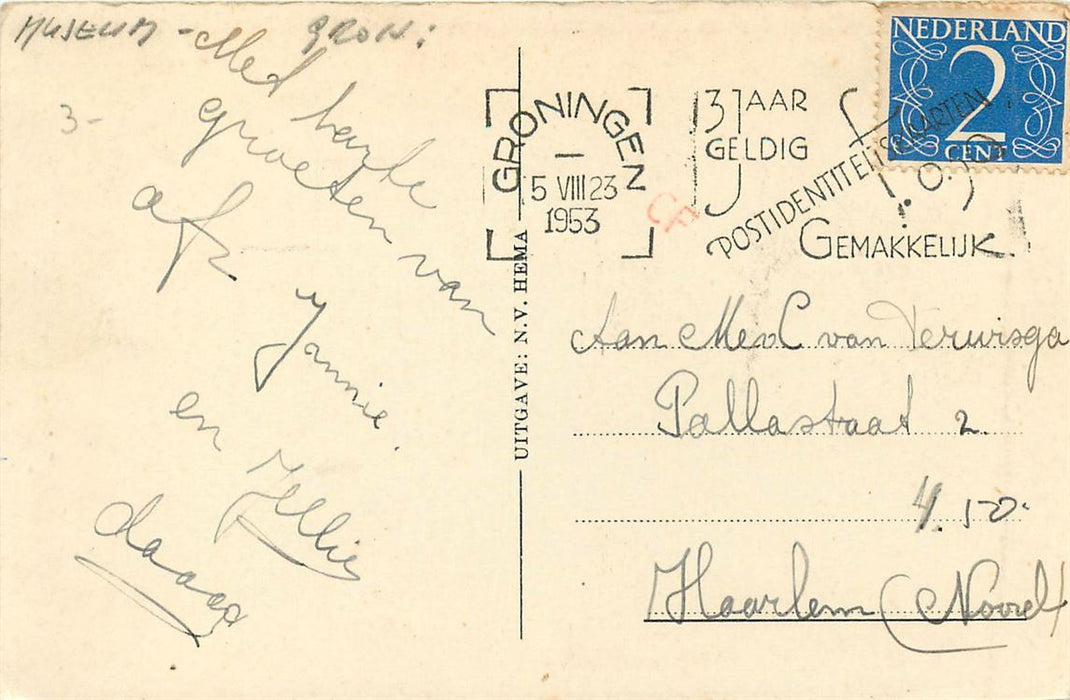 MUSEUM - GRON:
3-
Met harte
groeten van
afz
Jannie.
en Jellie
daaag
UITGAVE: N.V. HEMA
GRONINGEN
5 VIII 23
1953
3 JAAR
GELDIG
POSTIDENTITEITSKAARTEN
GEMAKKELIJK
CF
NEDERLAND
2
CENT
Aan Mej C van Terwisga
Pallastraat 2.
4.50.
Haarlem (Noord)